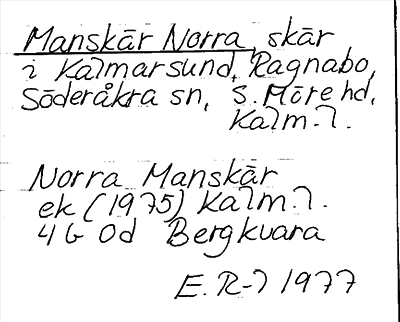 Manskär Norra, skär
i Kalmarsund, Ragnabo,
Söderåkra sn, S. Möre hd,
Kalm. l.
Norra Manskär
ek (1975) Kalm. l.
4 G 0d Bergkvara
E. R-l 1977